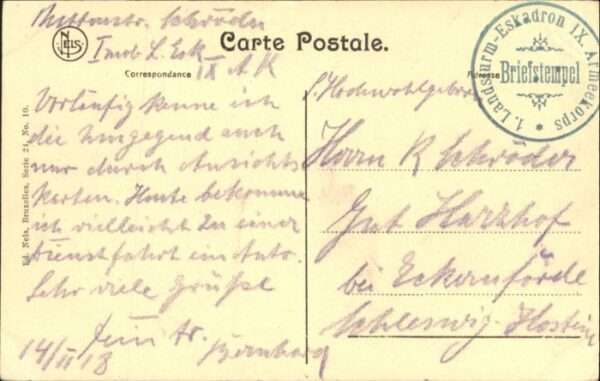 Schröder
I mob. L. Esk.
IX A K
NELS
Carte Postale.
Correspondance
Adresse
1. Landsturm-Eskadron IX. Armeekorps
Briefstempel
Ed. Nels, Bruxelles, Serie 21, No. 10.
Vorläufig kenne ich
die Umgegend auch
nur durch Ansichts
karten. Heute bekomme
ich vielleicht zu einer
Dienstfahrt ein Auto.
Sehr viele Grüße
Dein tr.
Bernhard
14/II 18
S. Hochwohlgebor
Herrn R Schröder
Gut Harzhof
bei Eckernförde
Schleswig-Holstein